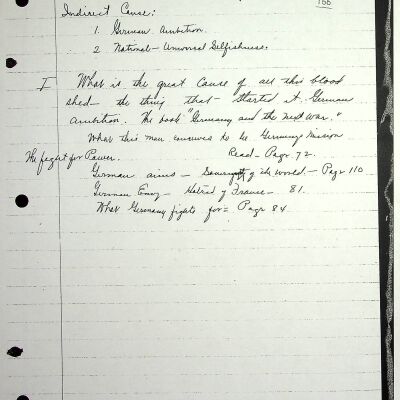 166
Indirect Cause:
1. German Ambition.
2 National-Universal Selfishness.
I What is the great Cause of all this blood
shed - the thing that started it. German
Ambition. The book "Germany and the next War."
What this man conceives to be Germany's Mission
The fight for Power. Read - Page 72.
German aims - of the World - Page 110
German Envy - Hatred of France - 81.
What Germany fights for = Page 84